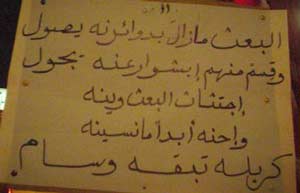 البعث مازال بدوائرنه يصول
وقسم منهم إبشوارعنه يجول
إجتثاث البعث وينه
وإحنه أبداً مانسينه
كربله تبقه وسام